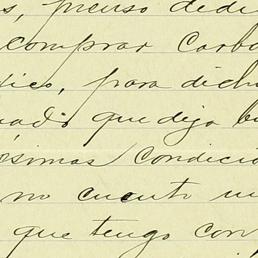 s, pienso dedi
comprar Carbo
dico, para dicho
uado que deja bu
ísimas condicio
no cuento
que tengo con